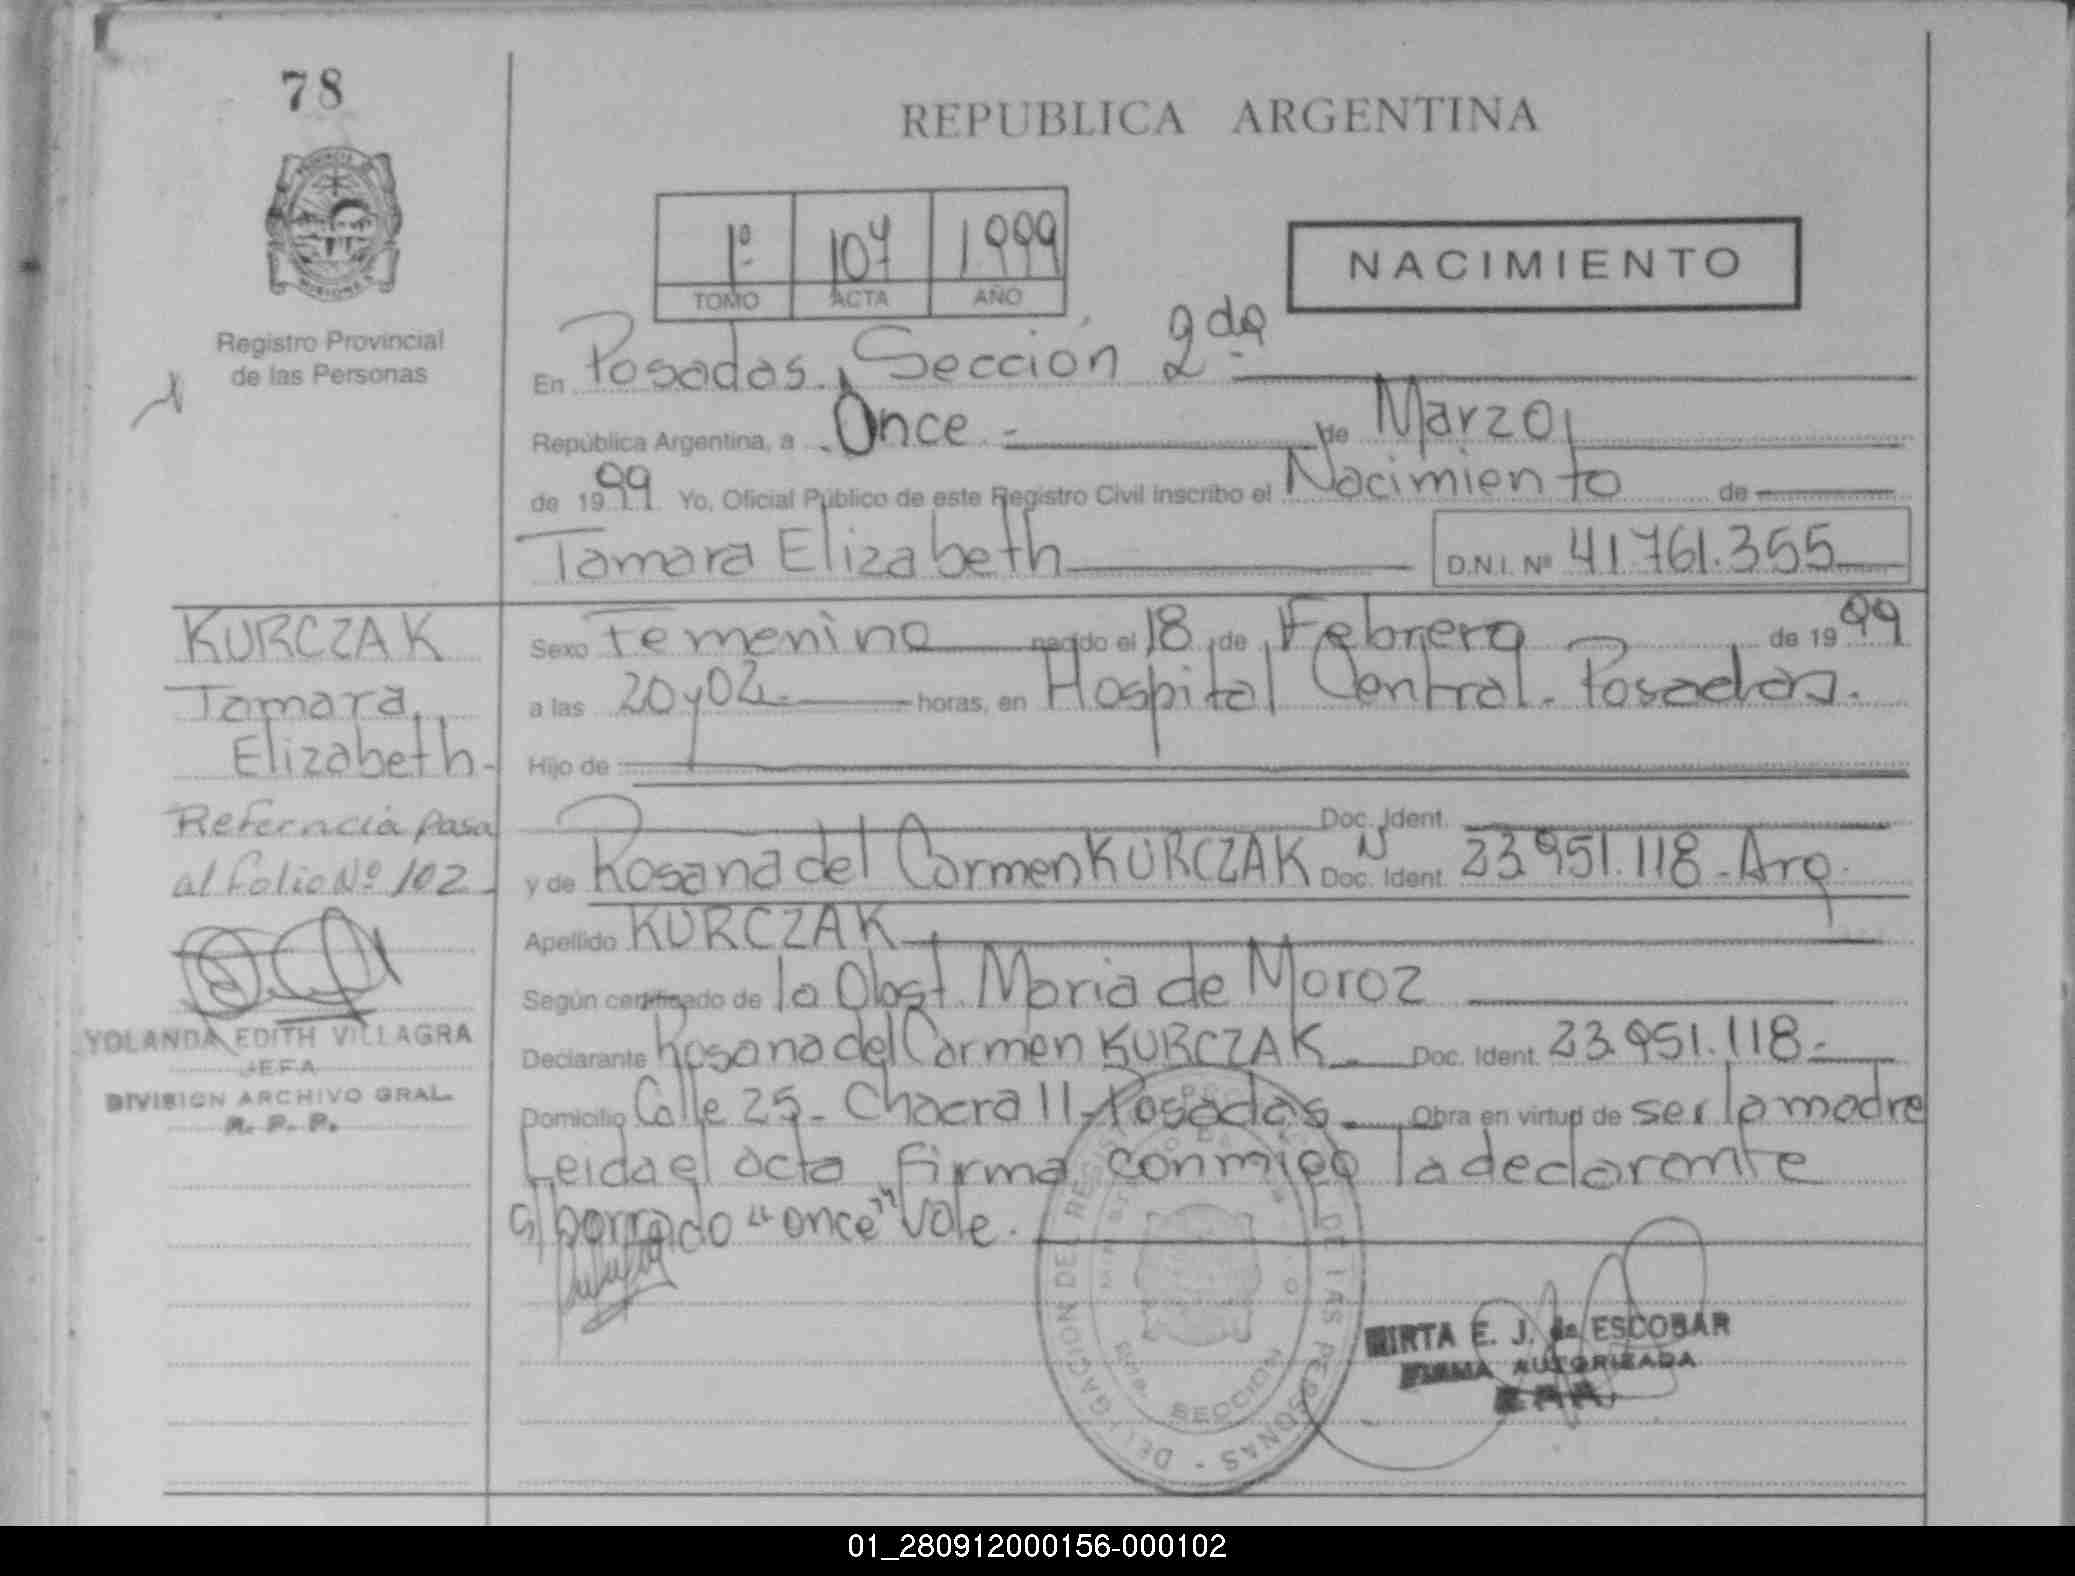 78
REPUBLICA ARGENTINA
1º 107 1999
TOMO ACTA AÑO
NACIMIENTO
Registro Provincial
de las Personas
En Posadas, Sección 2da
República Argentina, a Once de Marzo
de 1999 Yo, Oficial Público de este Registro Civil inscribo el Nacimiento de
Tamara Elizabeth D.N.I. Nº 41.761.355
KURCZAK
Tamara
Elizabeth-
Referncia pasa
al folio Nº 102
YOLANDA EDITH VILLAGRA
JEFA
DIVISION ARCHIVO GRAL.
R. P. P.
Sexo Femenino nacido el 18 de Febrero de 1999
a las 20y02 horas, en Hospital Central. Posadas.
Hijo de
Doc. Ident.
y de Rosana del Carmen KURCZAK Doc. Ident. 23.951.118-Arg.
Apellido KURCZAK
Según certificado de la Obst. Maria de Moroz
Declarante Rosana del Carmen KURCZAK Doc. Ident. 23.951.118.-
Domicilio Calle 25- Chacra 11-Posadas Obra en virtud de ser la madre
Leida el acta firma conmigo la declarante
borrado "once" vale.
DELEGACION DEL REGISTRO DE LAS PERSONAS
SECCION
MIRTA E. J. de ESCOBAR
FIRMA AUTORIZADA
01_280912000156-000102